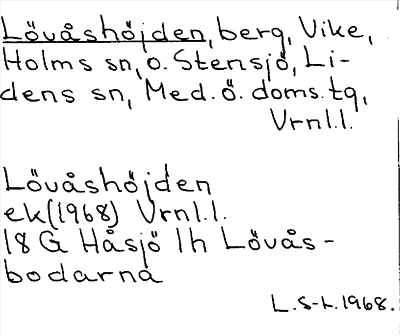 Lövåshöjden, berg, Vike,
Holms sn, o. Stensjö, Li-
dens sn, Med. Ö. doms. tg,
Vrnl.l.
Lövåshöjden
ek(1968) Vrnl.l.
18 G Håsjö 1h Lövås-
bodarna
L. S-t. 1968.